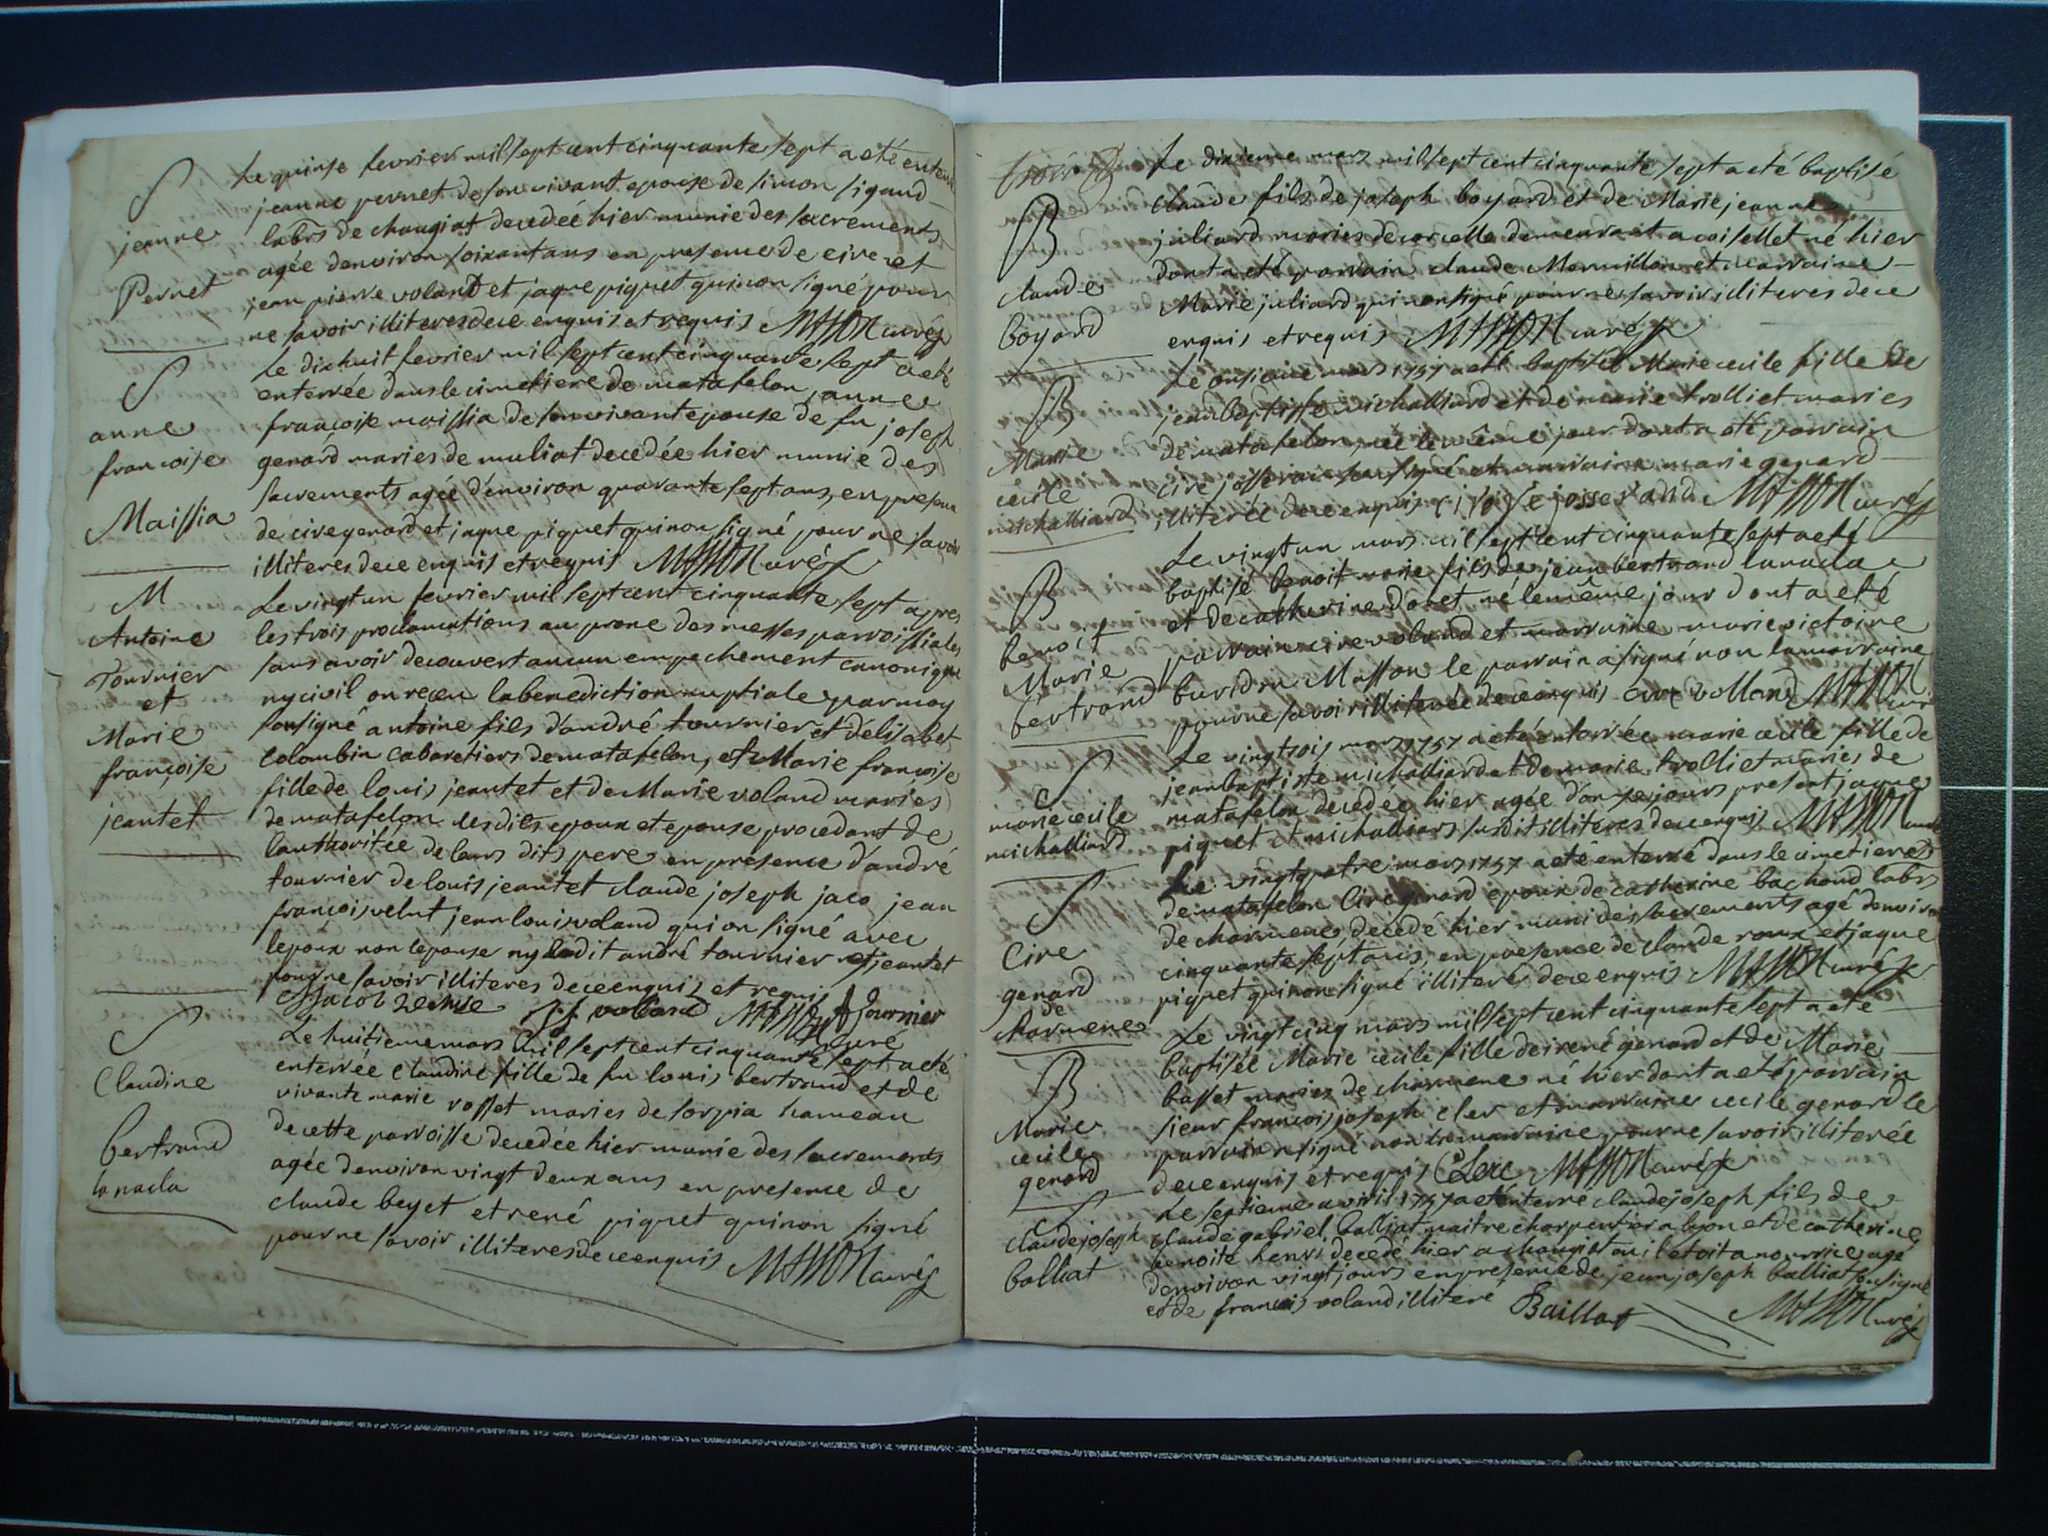 S
jeanne
Pernet
Le quinse fevrier mil sept cent cinquante sept a eté enterr
jeanne pernet de son vivant epouse de simon sigaud
labrs de changiat decedeé hier munie des sacrements
agée denviron soixant ans en presence de cire et
jean pierre voland et jaque piquet qui non signé pour
ne savoir illiteres de ce enquis et requis MASSON curé
S
anne
francoise
Maissia
Le dixhuit fevrier mil sept cent cinquante sept a eté
enterrée dans le cimetiere de matafelon anne
françoise maissia de son vivant epouse de fu joseph
genard maries de muliat decedée hier munie des
sacrements agée denviron quarante sept ans, en presence
de cire genard et jaque piquet qui non signé pour ne savoir
illiteres de ce enquis et requis MASSON curé
M
Antoine
Tournier
et
Marie
françoise
jeantet
Le vingt un fevrier mil sept cent cinquante sept apres
les trois proclamations au prone des messes parroissiales
sans avoir decouvert aucun empechement canonique
ny civil on receu la benediction nuptiale par moy
sousigné antoine fils d'andré tournier et d'elisabet
Colombin cabaretiers de matafelon, et Marie françoise
fille de louis jeantet et de Marie voland maries
de matafelon lesdits epoux et epouse procedant de
l'authoritée de leurs dits pere en presence d'andré
tournier de louis jeantet claude joseph jaco jean
françois velut jean louis voland qui on signé avec
lepoux non lepouse ny ledit andré tournier et jeantet
pour ne savoir illiteres de ce enquis et requis
j.l. volland MASSON curé A tournier
S
Claudine
bertrand
lanada
Le huitieme mars mil sept cent cinquante sept a eté
enterrée claudine fille de fu louis bertrand et de
vivante marie rosset maries de sorpia hameau
de cette parroisse decedée hier munie des sacrements
agée denviron vingt deux ans en presence de
claude beyet et rené piquet qui non signé
pour ne savoir illiteres de ce enquis MASSON curé
B
claude
boyard
Le dixieme mars mil sept cent cinquante sept a eté baptisé
claude fils de joseph boyard et de Marie jeanne
juliard maries de corcelle demeurant a coiselet né hier
dont a eté parrain claude Mermillon et marraine
Marie juliard qui non signé pour ne savoir illiteres de ce
enquis et requis MASSON curé
B
Marie
cecile
michalliard
Le onsieme mars 1757 a eté baptisée Marie cecile fille de
jean baptiste michalliard et de marie trolliet maries
de matafelon, née le même jour dont a eté parrain
cire josserand sousigné et marraine marie genard
illiterée de ce enquis josserand MASSON curé
B
benoit
Marie
bertrand
Le vingt un mars mil sept cent cinquante sept a eté
baptisé benoit marie fils de jean bertrand lanada
et de catherine doret né le même jour dont a eté
parrain cire voland et marraine marie victoire
buridon Masson le parrain a signé non la marraine
pour ne savoir illiterée de ce enquis cire volland MASSON curé
S
marie cecile
michalliard
Le vingt trois mars 1757 a eté enterrée marie cecile fille de
jean baptiste michalliard et de marie trolliet maries de
matafelon decedée hier agée d'onze jours present jaque
piquet et michalliard susdit illiteres de ce enquis MASSON curé
S
Cire
genard
de
charmene
Le vingt quatre mars 1757 a eté enterré dans le cimetiere
de matafelon Cire genard epoux de catherine bachoud labrs
de charmene decedé hier muni des sacrements agé denviron
cinquante sept ans, en presence de claude roux et jaque
piquet qui non signé illiteres de ce enquis MASSON curé
B
Marie
cecile
genard
Le vingt cinq mars mil sept cent cinquante sept a eté
baptisée Marie cecile fille de irené genard et de Marie
basset maries de charmene né hier dont a eté parrain
sieur françois joseph clerc et marraine cecile genard le
parrain a signé non la marraine pour ne savoir illiterée
de ce enquis et requis Clerc MASSON curé
S
claude joseph
balliat
Le septieme avril 1757 a eté enterré claude joseph fils de
claude gabriel balliat maitre charpentier a lyon et de catherine
benoite henri decedé hier a changiat ou il etoit a nourrice agé
denviron vingt jours en presence de jean joseph balliat sousigné
et de francois voland illiteré Baillat MASSON curé